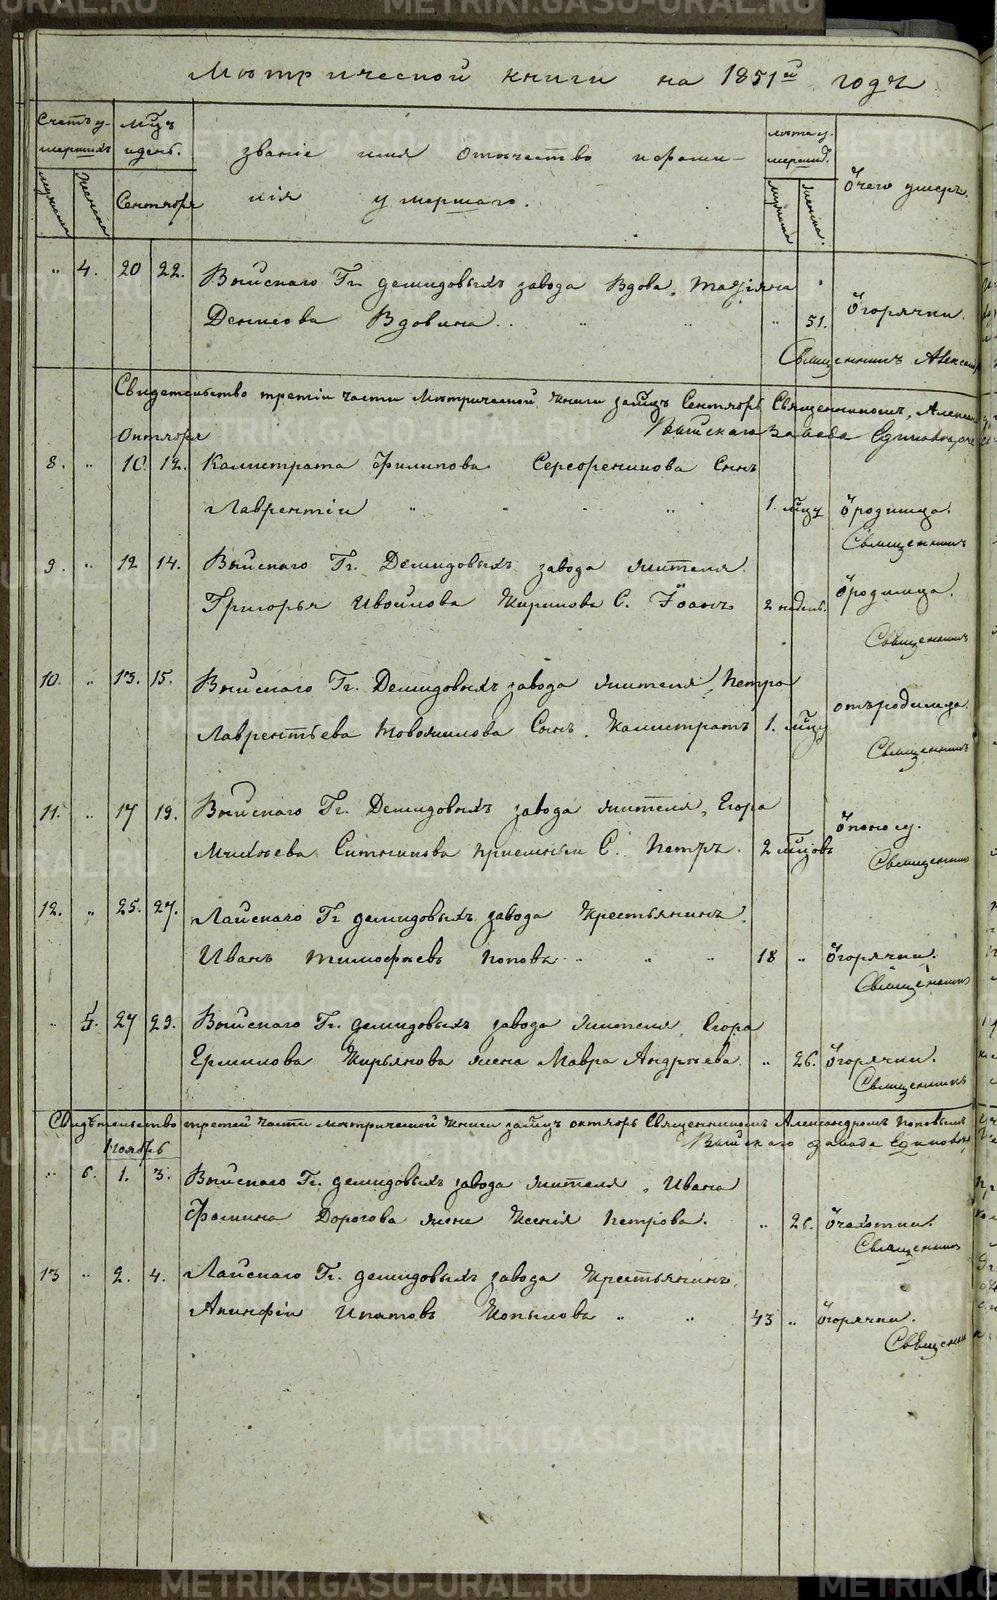 Мѣтрической книги на 1851й годъ
Счетъ умершихъ
мужеска
женска
мѣць и день.
Сентября
званіе имя отечество и фамилія умершаго.
лѣта умершихъ.
мужеска
женска.
Ѿ чего умеръ.
" 4. 20 22. Выйскаго Гг. демидовыхъ завода Вдова, татіяна
Денисова Вдовина .. " " " 51. Ѿ горячки.
Священникъ Александръ
Свидетельство третіи части Мѣтрической книги за мѣць Сентябрь Священникомъ,
Выйскаго завода
Октября
8. " 10. 12. Калистрата Филипова Серебреникова Сынъ
Лаврентіи " " " 1. мѣцу Ѿ родимца.
Священникъ
9. " 12 14. Выйскаго Гг. Демидовыхъ завода жителя
Григорья Ивойлова Кирилова С. Іоанъ 2 недель. Ѿ родимца.
Священникъ
10. " 13. 15. Выйскаго Гг. Демидовыхъ завода жителя, петра
Лаврентьева товожилова Сынъ. Калистратъ 1. мѣцу отъ родимца
Священникъ
11. " 17 19. Выйскаго Гг. Демидовыхъ завода жителя, Егора
Михѣева Ситникова приемный С. Петръ. 2 мѣцовъ Ѿ поносу.
Священникъ
12. " 25. 27. Лайскаго Гг демидовыхъ завода Крестьянинъ,
Иванъ тимофѣевъ поповъ .. " " 18 " Ѿ горячки.
Священникъ
" 5. 27 29. Выйскаго Гг. демидовыхъ завода жителя, Егора
Ермилова Кирьянова жена Мавра Андрѣева. " 26. Ѿ горячки.
Священникъ
Свидѣтельство третей части мѣтрической книги за мѣць октябрь Священникомъ Александромъ поповымъ
Выйскаго завода
Ноябрь
" 6. 1. 3. Выйскаго Гг. демидовыхъ завода жителя, Ивана
Фомина Дорогова жена Ксенія петрова. " 26. Ѿ чахотки.
Священникъ
13 " 2. 4. Лайскаго Гг. демидовыхъ завода Крестьянинъ,
Акинфіи Ипатовъ Копыловъ " " 43 " Ѿ горячки.
Священникъ
METRIKI.GASO-URAL.RU